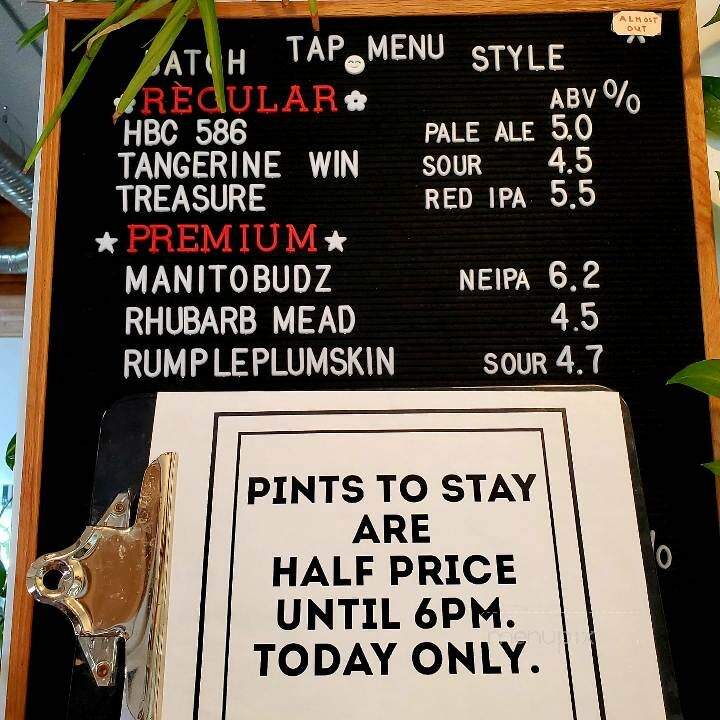 ALMOST
OUT
TAP MENU
STYLE
REGULAR
ABV %
HBC 586 PALE ALE 5.0
TANGERINE WIN SOUR 4.5
TREASURE RED IPA 5.5
PREMIUM
MANITOBUDZ NEIPA 6.2
RHUBARB MEAD 4.5
RUMPLEPLUMSKIN SOUR 4.7
PINTS TO STAY
ARE
HALF PRICE
UNTIL 6PM.
TODAY ONLY.